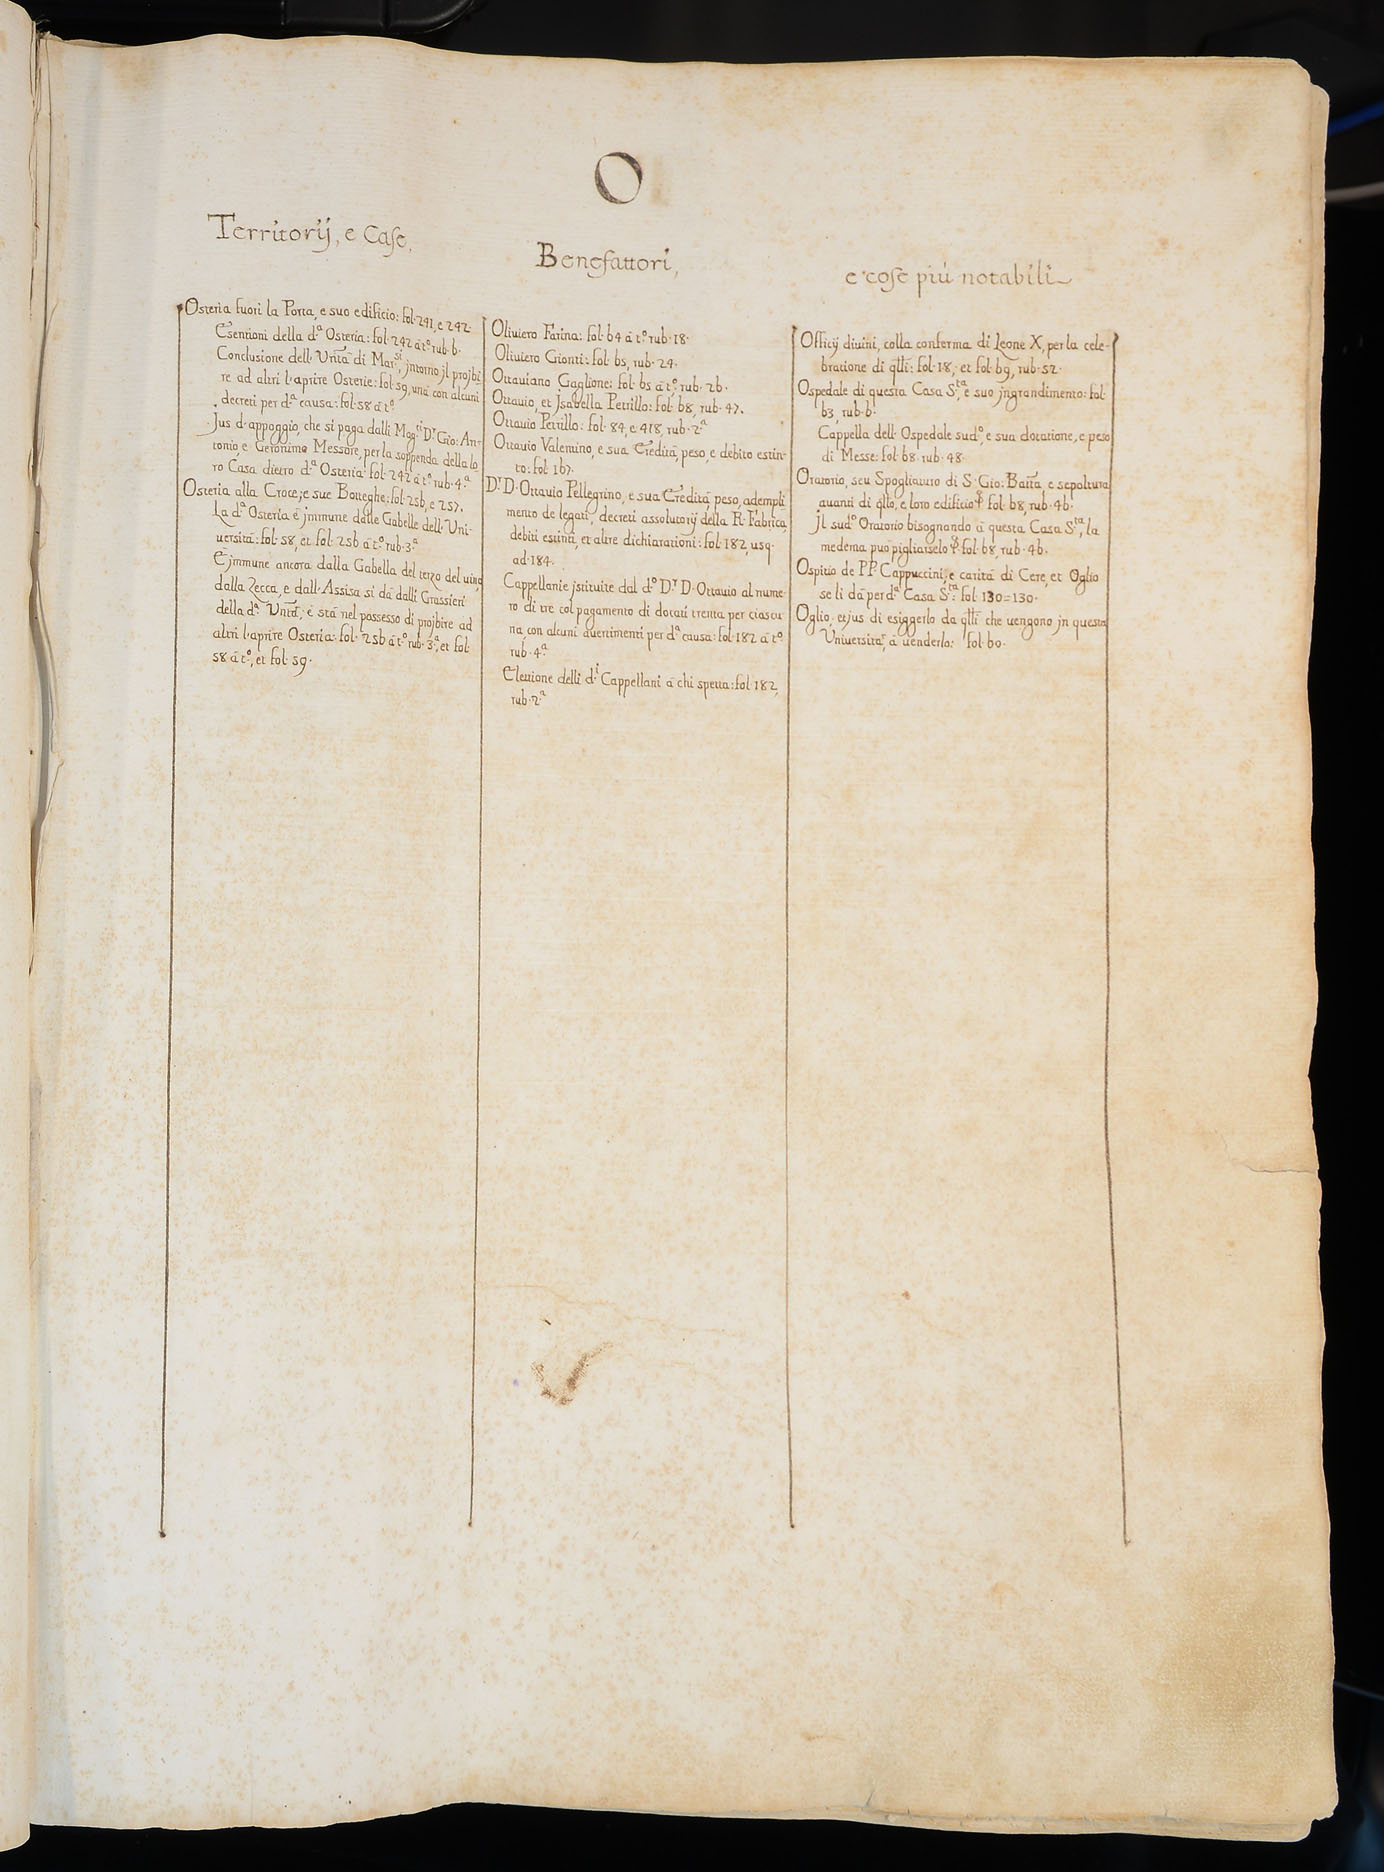 O
Territorij, e Case,
Benefattori,
e cose più notabili
Osteria fuori la Porta, e suo edificio: fol. 241, e 242.
Esentioni della d.ª Osteria: fol. 242 à t.º rub. 6.
Conclusione dell'Unĩtà di Mar.si, intorno jl projbi
re ad altri l'aprire Osterie: fol. 59, una con alcuni
decreti per d.ª causa: fol. 58 à t.º
Jus d'appoggio, che si paga dalli Mag.ci D.r Gio: An-
tonio, e Geronimo Messore, per la soppenda della lo
ro Casa dietro d.ª Osteria: fol. 242 à t.º rub. 4.ª
Osteria alla Croce, e sue Botteghe: fol. 256, e 257.
La d.ª Osteria è jmmune dalle Gabelle dell'Uni-
uersità: fol. 58, et fol. 256 à t.º rub. 3.ª
È jmmune ancora dalla Gabella del terzo del uino
dalla Zecca, e dall'Assisa si dà dalli Grassieri
della d.ª Unĩtà; e stà nel possesso di projbire ad
altri l'aprire Osteria: fol. 256 à t.º rub. 3.ª, et fol.
58 à t.º, et fol. 59.
Oliuiero Farina: fol. 64 à t.º rub. 18.
Oliuiero Gionti: fol. 65, rub. 24.
Ottauiano Gaglione: fol. 65 à t.º rub. 26.
Ottauio, et Jsabella Petrillo: fol. 68, rub. 47.
Ottauio Petrillo: fol. 84, e 418, rub. 2.ª
Ottauio Valentino, e sua Eredità, peso, e debito estin-
to: fol. 167.
D.r D. Ottauio Pellegrino, e sua Eredità, peso, adempli
mento de legati, decreti assolutorij della R. Fabrica,
debiti estinti, et altre dichiarationi: fol. 182, usq.
ad 184.
Cappellanie jstituite dal d.º D.r D. Ottauio al nume-
ro di tre col pagamento di docati trenta per ciascu
na, con alcuni auertimenti per d.ª causa: fol. 182 à t.º
rub. 4.ª
Elettione delli d.i Cappellani à chi spetta: fol. 182,
rub. 2.ª
Officij diuini, colla conferma di Leone X, per la cele-
bratione di q̃lli: fol. 18, et fol. 69, rub. 52.
Ospedale di questa Casa S.ta, e suo jngrandimento: fol.
63, rub. 6.
Cappella dell'Ospedale sud.º, e sua dotatione, e peso
di Messe: fol. 68. rub. 48.
Oratorio, seu Spogliaturo di S. Gio: Batt̃a, e sepoltura
auanti di q̃llo, e loro edificio fol. 68, rub. 46.
Jl sud.º Oratorio bisognando à questa Casa S.ta, la
medema può pigliarselo fol. 68, rub. 46.
Ospitio de PP. Cappuccini, e carità di Cere, et Oglio
se li dà per d.ª Casa S.ta: fol. 130=130.
Oglio, et jus di esiggerlo da q̃lli che uengono jn questa
Uniuersità, à uenderlo: fol. 60.